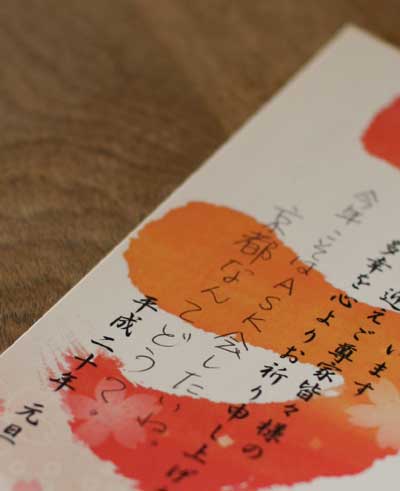 います
迎えご尊家皆々様の
多幸を心よりお祈り申し上げ
今年こそはASK会したいね。
京都なんてどう
平成二十年
元旦